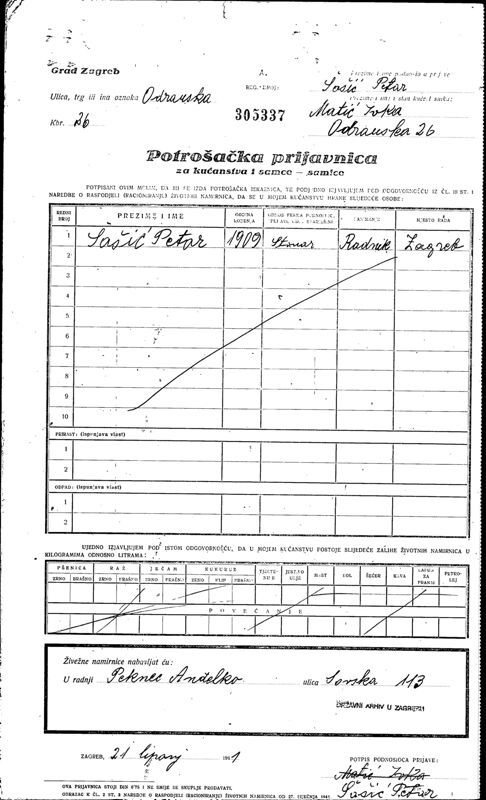 Grad Zagreb
A.
Ulica, trg ili ina oznaka Odranska
REG. BROJ:
305337
Kbr. 26
Prezime i ime podnosioca prijave
Šašić Petar
Prezime i ime i stan kuće
Matić Ivka
Odranska 26
Potrošačka prijavnica
za kućanstva i samce - samice
POTPISANI OVIM MOLIM, DA MI SE IZDA POTROŠAČKA ISKAZNICA, TE PODJEDNO IZJAVLJUJEM POD ODGOVORNOŠĆU IZ ČL. ST. 1
NAREDBE O RASPODJELI (RACIONIRANJU) ŽIVOTNIH NAMIRNICA, DA SE U MOJEM KUĆANSTVU HRANE SLIJEDEĆE OSOBE:
REDNI BROJ PREZIME I IME GODINA ROĐENJA ZANIMANJE MJESTO RADA
1 Šašić Petar 1909 Stanar Radnik Zagreb
2
3
4
5
6
7
8
9
10
PRIRAST: (ispunjava vlast)
1
2
OTPAD: (ispunjava vlast)
1
2
UJEDNO IZJAVLJUJEM POD ISTOM ODGOVORNOŠĆU, DA U MOJEM KUĆANSTVU POSTOJE SLIJEDEĆE ZALIHE ŽIVOTNIH NAMIRNICA U
KILOGRAMIMA ODNOSNO LITRAMA:
PŠENICA RAŽ JEČAM KUKURUZ TJESTENINE JESTIVO ULJE MAST SOL ŠEĆER KAVA SAPUN ZA PRANJE PETROLEJ
ZRNO BRAŠNO ZRNO BRAŠNO ZRNO BRAŠNO ZRNO KLIP BRAŠNO
POVEĆANJE
Živežne namirnice nabavljat ću:
U radnji Peknec Anđelko ulica Savska 113
DRŽAVNI ARHIV U ZAGREBU
ZAGREB, 21 lipanj 1941
POTPIS PODNOSIOCA PRIJAVE:
Matić Ivka
Šašić Petar
OVA PRIJAVNICA STOJI DIN 0.75 I NE SMIJE SE SKUPLJE PRODAVATI.
OBRAZAC K ČL. 2 ST. 3 NAREDBE O RASPODJELI (RACIONIRANJU) ŽIVOTNIH NAMIRNICA OD 27. SIJEČNJA 1941.